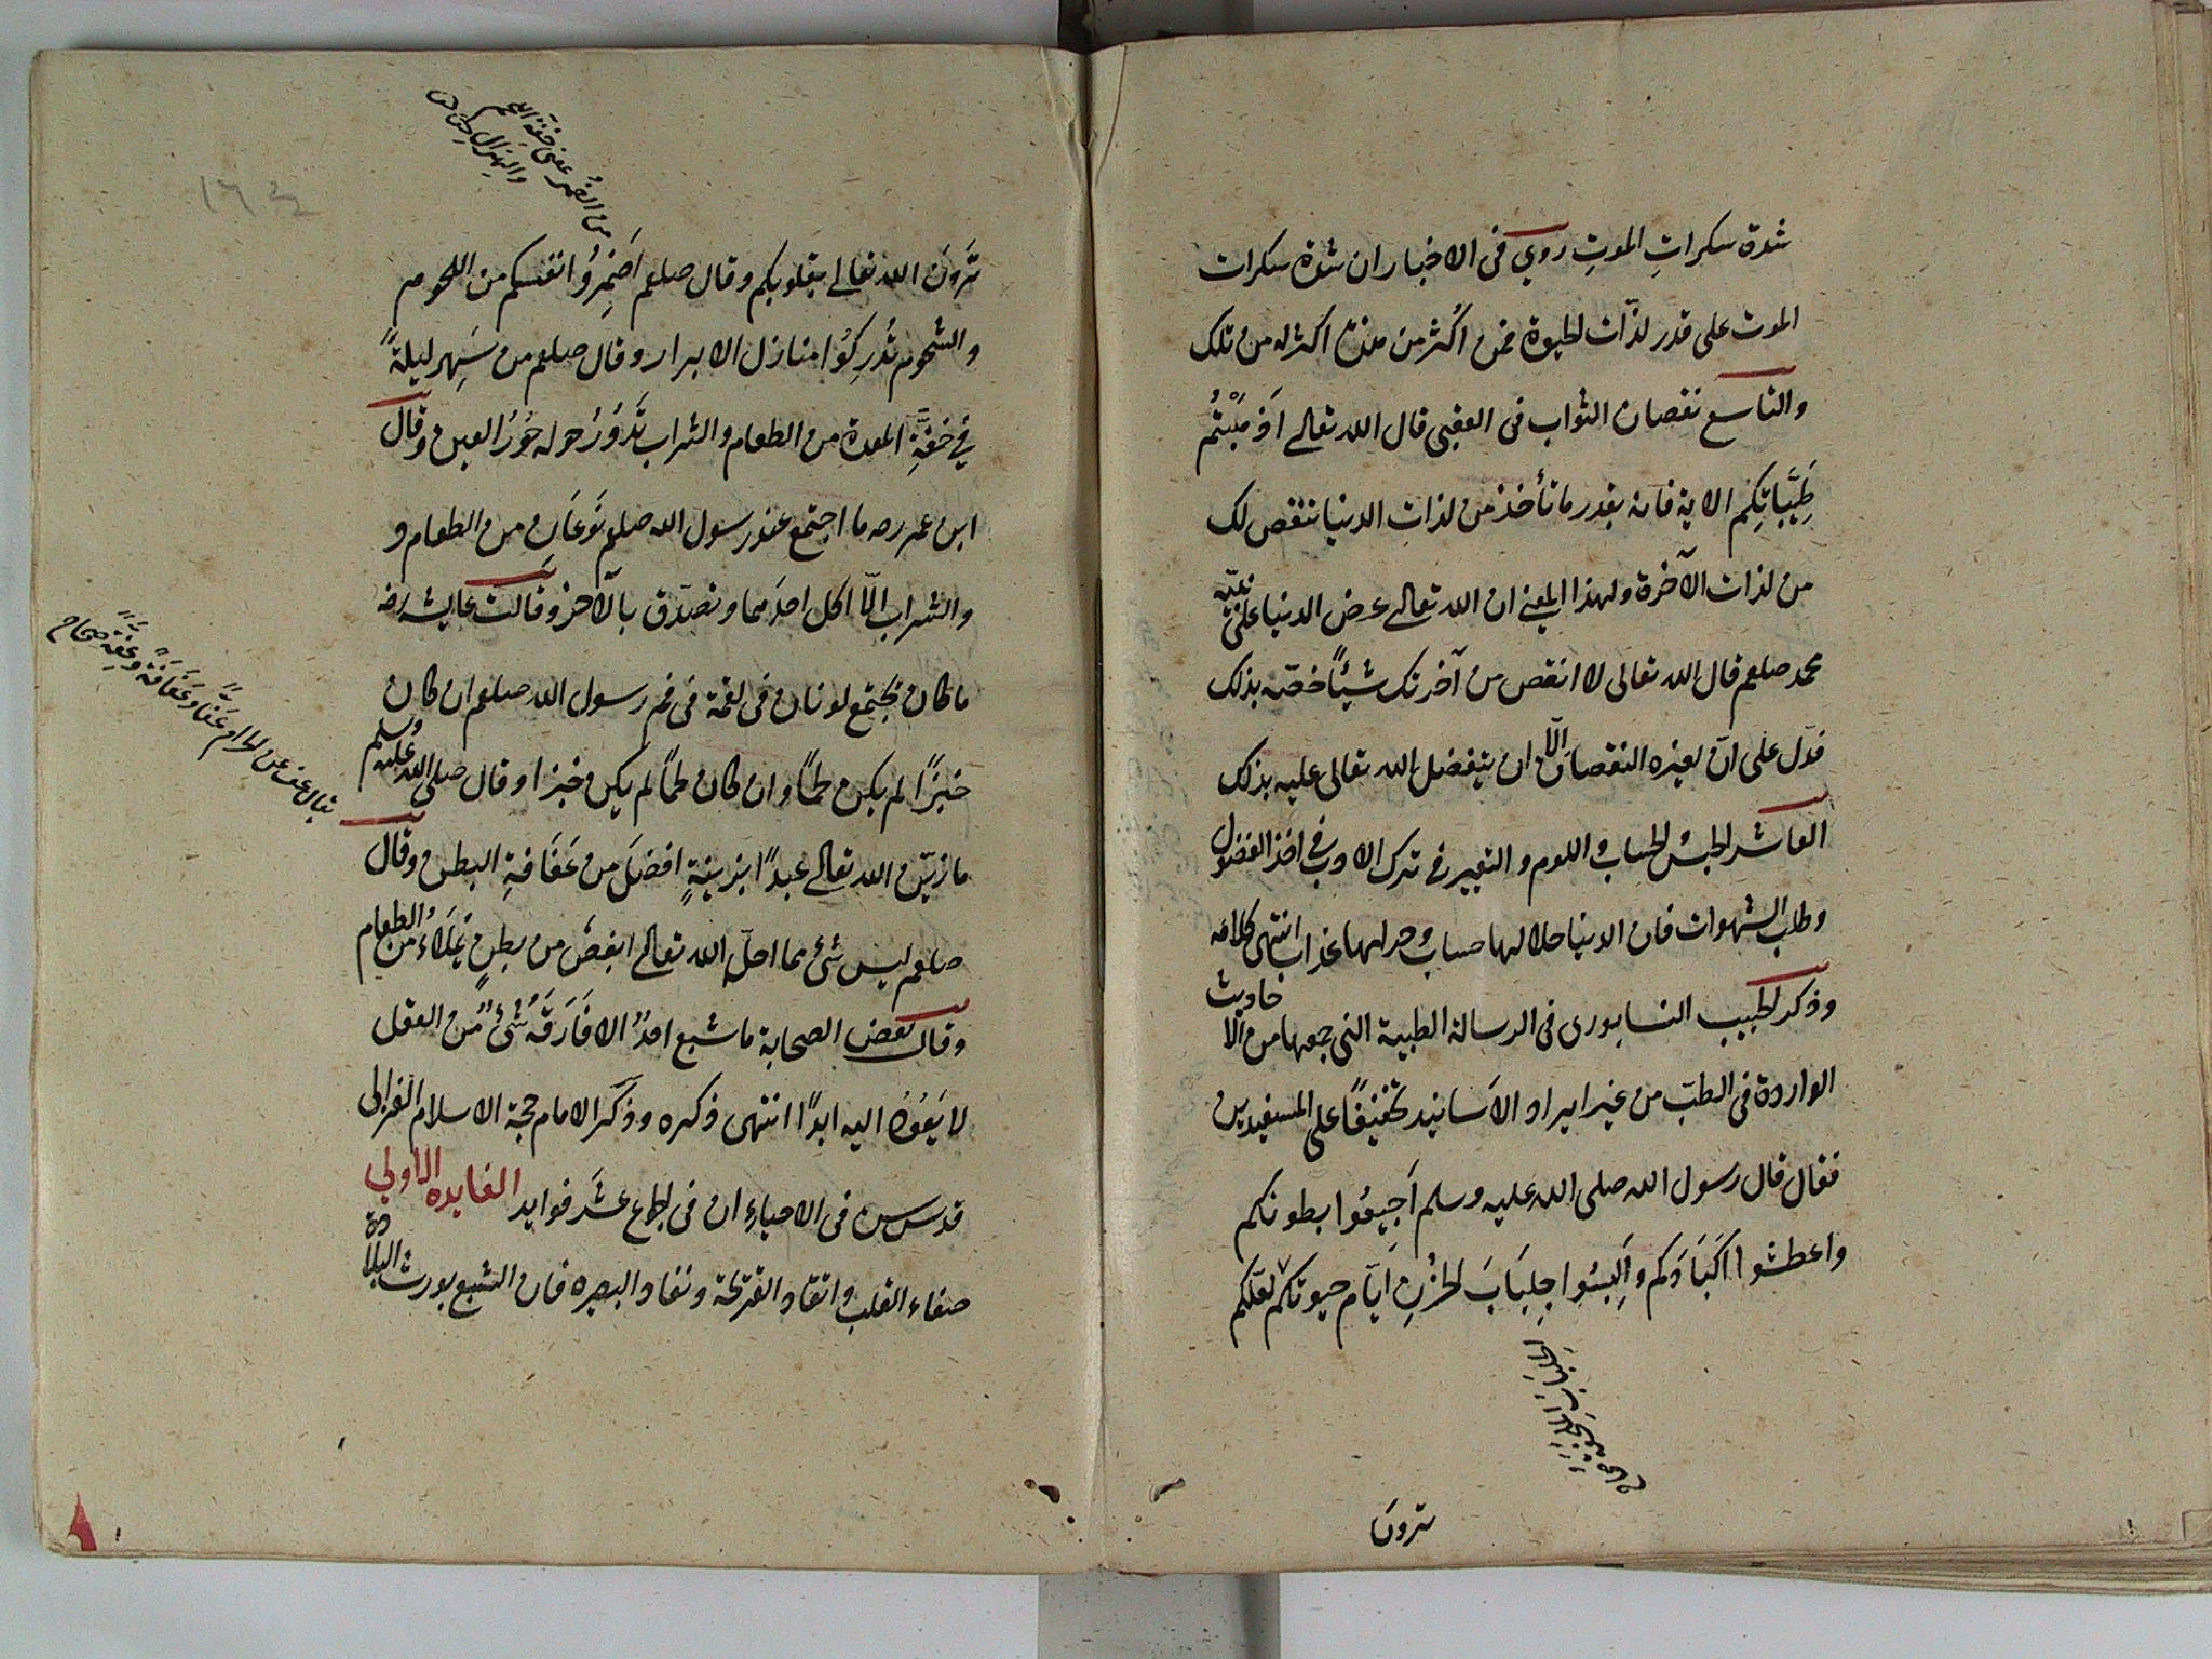 شدة سكراتِ الموتِ روي فى الاخبار ان شدة سكرات
الموت على قدر لذّات لحيوة فمن اكْثر من هذه اكثر له من تلك
والتاسع نقصان الثواب فى العقبى قال الله تعالى اَذهَبْتُم
طَيِّبَاتِكُم الاية فانه بقدر ما تأخذ من لذات الدنيا تنقص لك
من لذات الآخرة ولهذا المعنى ان الله تعالى عرض الدنيا على نبيّه
محمد صلعم قال الله تعالى لا انقص من آخرتك شيئاً خصّه بذلك
فدّل على انّ لغيره النقصان الّا ان يتفضل الله تعالى عليه بذلك
العاشر لحبسُ لحساب واللوم والتعيير فى ترك الادب فى اخذ الفضول
وطلب الشهوات فان الدنيا حلالها حساب وحرامها عذاب انتهى كلامه
وذكر لحبيب النسابورى فى الرسالة الطبية التى جمعها من الاحاديث
الواردة فى الطبّ من غير ايراد الاَسانيد تخفيفًا على المستفيدين
فقال قال رسول الله صلى الله عليه وسلم اَجِيعُوا بطونكم
واعطشوا اَكبَادَكم واَلبسُوا جِلبَابَ لحزنِ ايّام حيوتكم لعلّكم
ترونَ
من الضمر بمعنى خفة اللحم
والهزال
تَرَونَ الله تعالى بقلوبكم وقال صلعم اَضمِرُوا انفسكم من اللحوم
والشحوم تُدرِكُوا منازل الابرار وقال صلعم من سَهِر ليلةً
فى خفّةِ المعدة من الطعام والشراب تَدُورُ حوله حُورُ العين وقال
ابن عمر رضه ما اجتمع عند رسول الله صلعم نَوعَانِ من الطعام و
والشراب الّا اكل احدَهما وتصدّق بالآخر وقالت عايشه رضه
ما كان يجتمع لونان فى لقمة فى فم رسول الله صلعم ان كان
خبزًا لم يكن لحمًا وان كان لحمًا لم يكن خبزا وقال صلى الله عليه وسلم
يقال عف عن لحرام عَفًّا وعَفَافَةً وعِفّةً صحاح
ما زيّن الله تعالى عبدًا بزينةٍ افضلَ من عَفَافةِ البطن وقال
صلعم ليس شئ مما احلّ الله تعالى ابغضَ من بطنٍ يَملاءُ من الطعام
وقال بعض الصحابة ما شبع احدٌ الا فَارَقَهُ شئٌ من العقل
لا يَعُودُ اليه ابدًا انتهى ذكره وذكر الامام حجة الاسلام الغزالى
قدس سره فى الاحياء ان فى لجوع عشر فوايد الفايده الاولى
صفاء القلب واتقاد القريحة ونفاد البصيره فان الشبع يورث البلادة